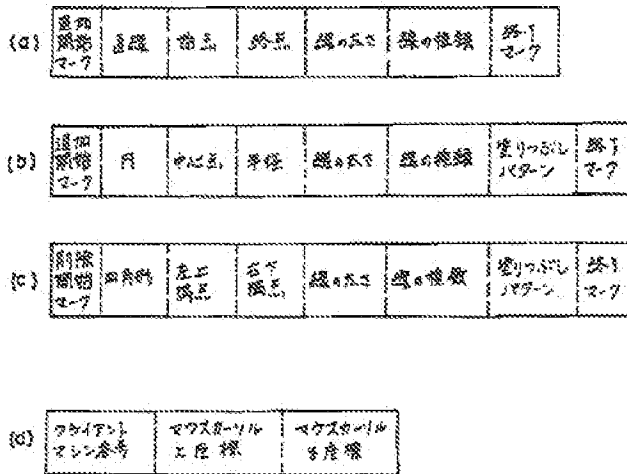 (a) 追加開始マーク 直線 始点 終点 線の太さ 線の種類 終了マーク
(b) 追加開始マーク 円 中心点 半径 線の太さ 線の種類 塗りつぶしパターン 終了マーク
(c) 削除開始マーク 四角形 左上端点 右下端点 線の太さ 線の種類 塗りつぶしパターン 終了マーク
(d) クライアントマシン番号 マウスカーソルx座標 マウスカーソルy座標